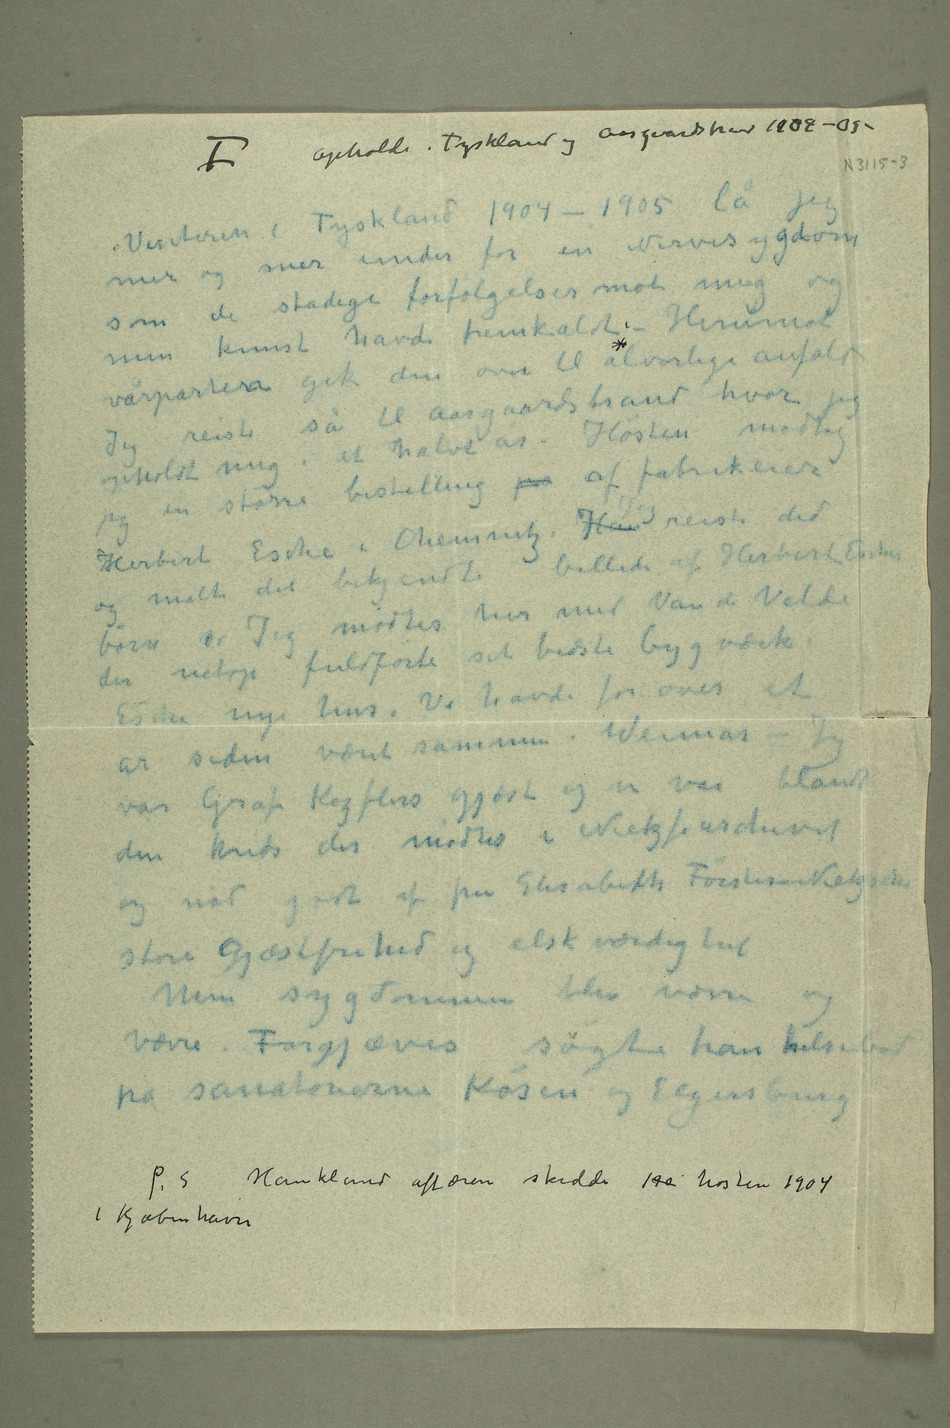 I opholdt i Tyskland og Aasgaardstrand 1902-05-
N 3115-3
Vinteren i Tyskland 1904 – 1905 lå jeg
mer og mer under for en nervesygdom
som de stadige forfølgelser mot mig og
min kunst havde fremkaldt – Henimot
vårparten gik den over til alvorlige anfald
Jeg reiste så til Aasgaardstrand hvor jeg
opholdt mig i et halvt år. Høsten modtog
jeg en større bestilling på af fabrikeier
Herbert Esche i Chemnitz. Han Jeg reiste did
og malte det bekjendte billede af Herbert Esches
børn Jeg mødtes her med Van de Velde
der netop fuldførte sit bedste bygværk
Esches nye hus. Vi havde for over et
år siden været sammen i Weimar – Jeg
var Graf Kezflers gjæst og vi var blandt
den krids der mødtes i Nietzschearchivet
og nød godt af fru Elisabeth Förster-Nietzsches
store Gjæstfrihed og elskværdighet
Men sygdommen blev værre og
værre. Forgjæves søgte han helsebod
på sanatorierne Kösen og Elgersburg
P.S Hauklandaffæren skedde høsten 1904
i Kjøbenhavn